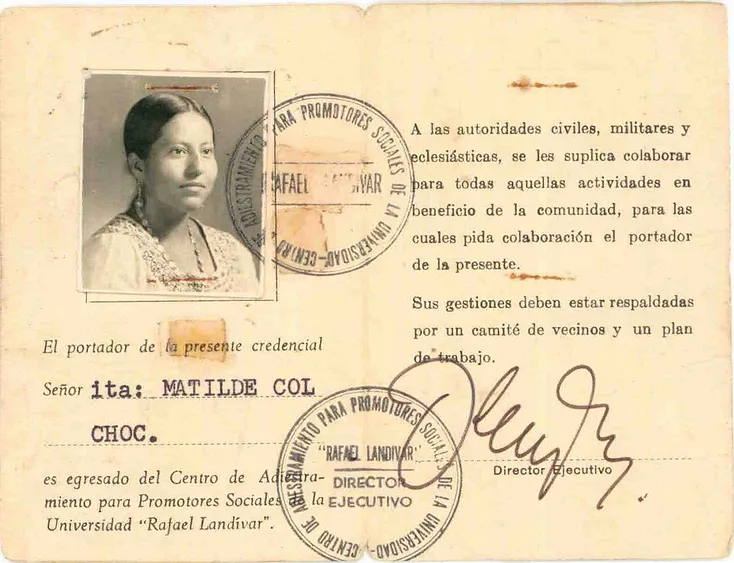 CENTRO DE ADIESTRAMIENTO PARA PROMOTORES SOCIALES DE LA UNIVERSIDAD
RAFAEL LANDIVAR
El portador de la presente credencial
Señor ita: MATILDE COL
CHOC.
es egresado del Centro de Adiestra-
miento para Promotores Sociales de la
Universidad "Rafael Landívar".
A las autoridades civiles, militares y
eclesiásticas, se les suplica colaborar
para todas aquellas actividades en
beneficio de la comunidad, para las
cuales pida colaboración el portador
de la presente.
Sus gestiones deben estar respaldadas
por un camité de vecinos y un plan
de trabajo.
Director Ejecutivo
CENTRO DE ADIESTRAMIENTO PARA PROMOTORES SOCIALES DE LA UNIVERSIDAD
"RAFAEL LANDIVAR"
DIRECTOR
EJECUTIVO